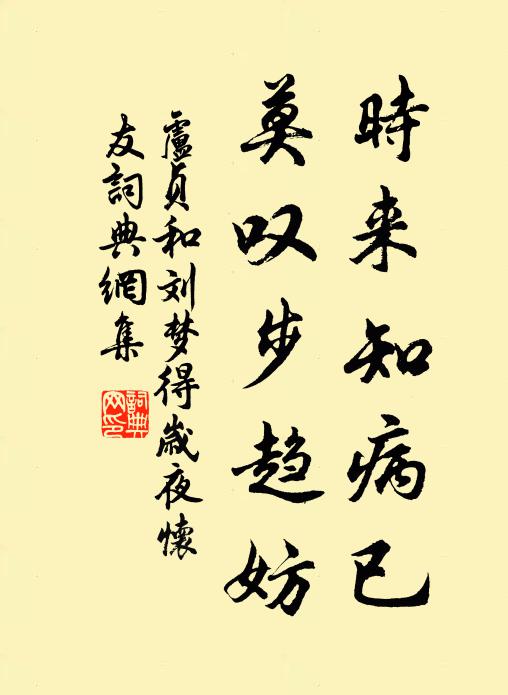 時来知病已
莫叹步趋妨
盧貞和刘梦得歲夜懷
友詞典網集
詞典
网印